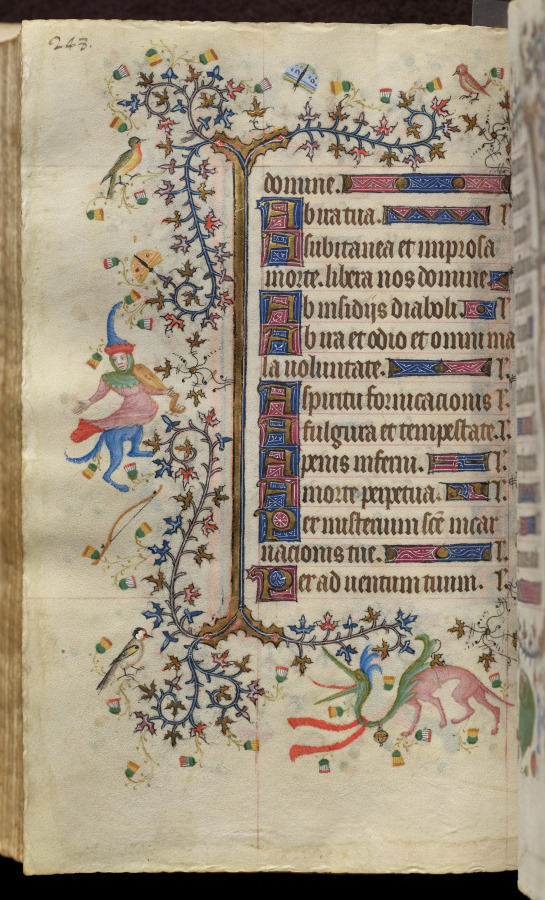 243.
domine.
Ab ira tua. l
A subitanea et improsa
morte. libera nos domine.
Ab insidijs diaboli. l
Ab ira et odio et omni ma
la uoluntate. l.
A spiritu fornicacionis l
A fulgura et tempestate. l.
A penis inferni. l
A morte perpetua. l.
Per misterium sce incar
nacionis tue. l
Per ad uentum tuum. l